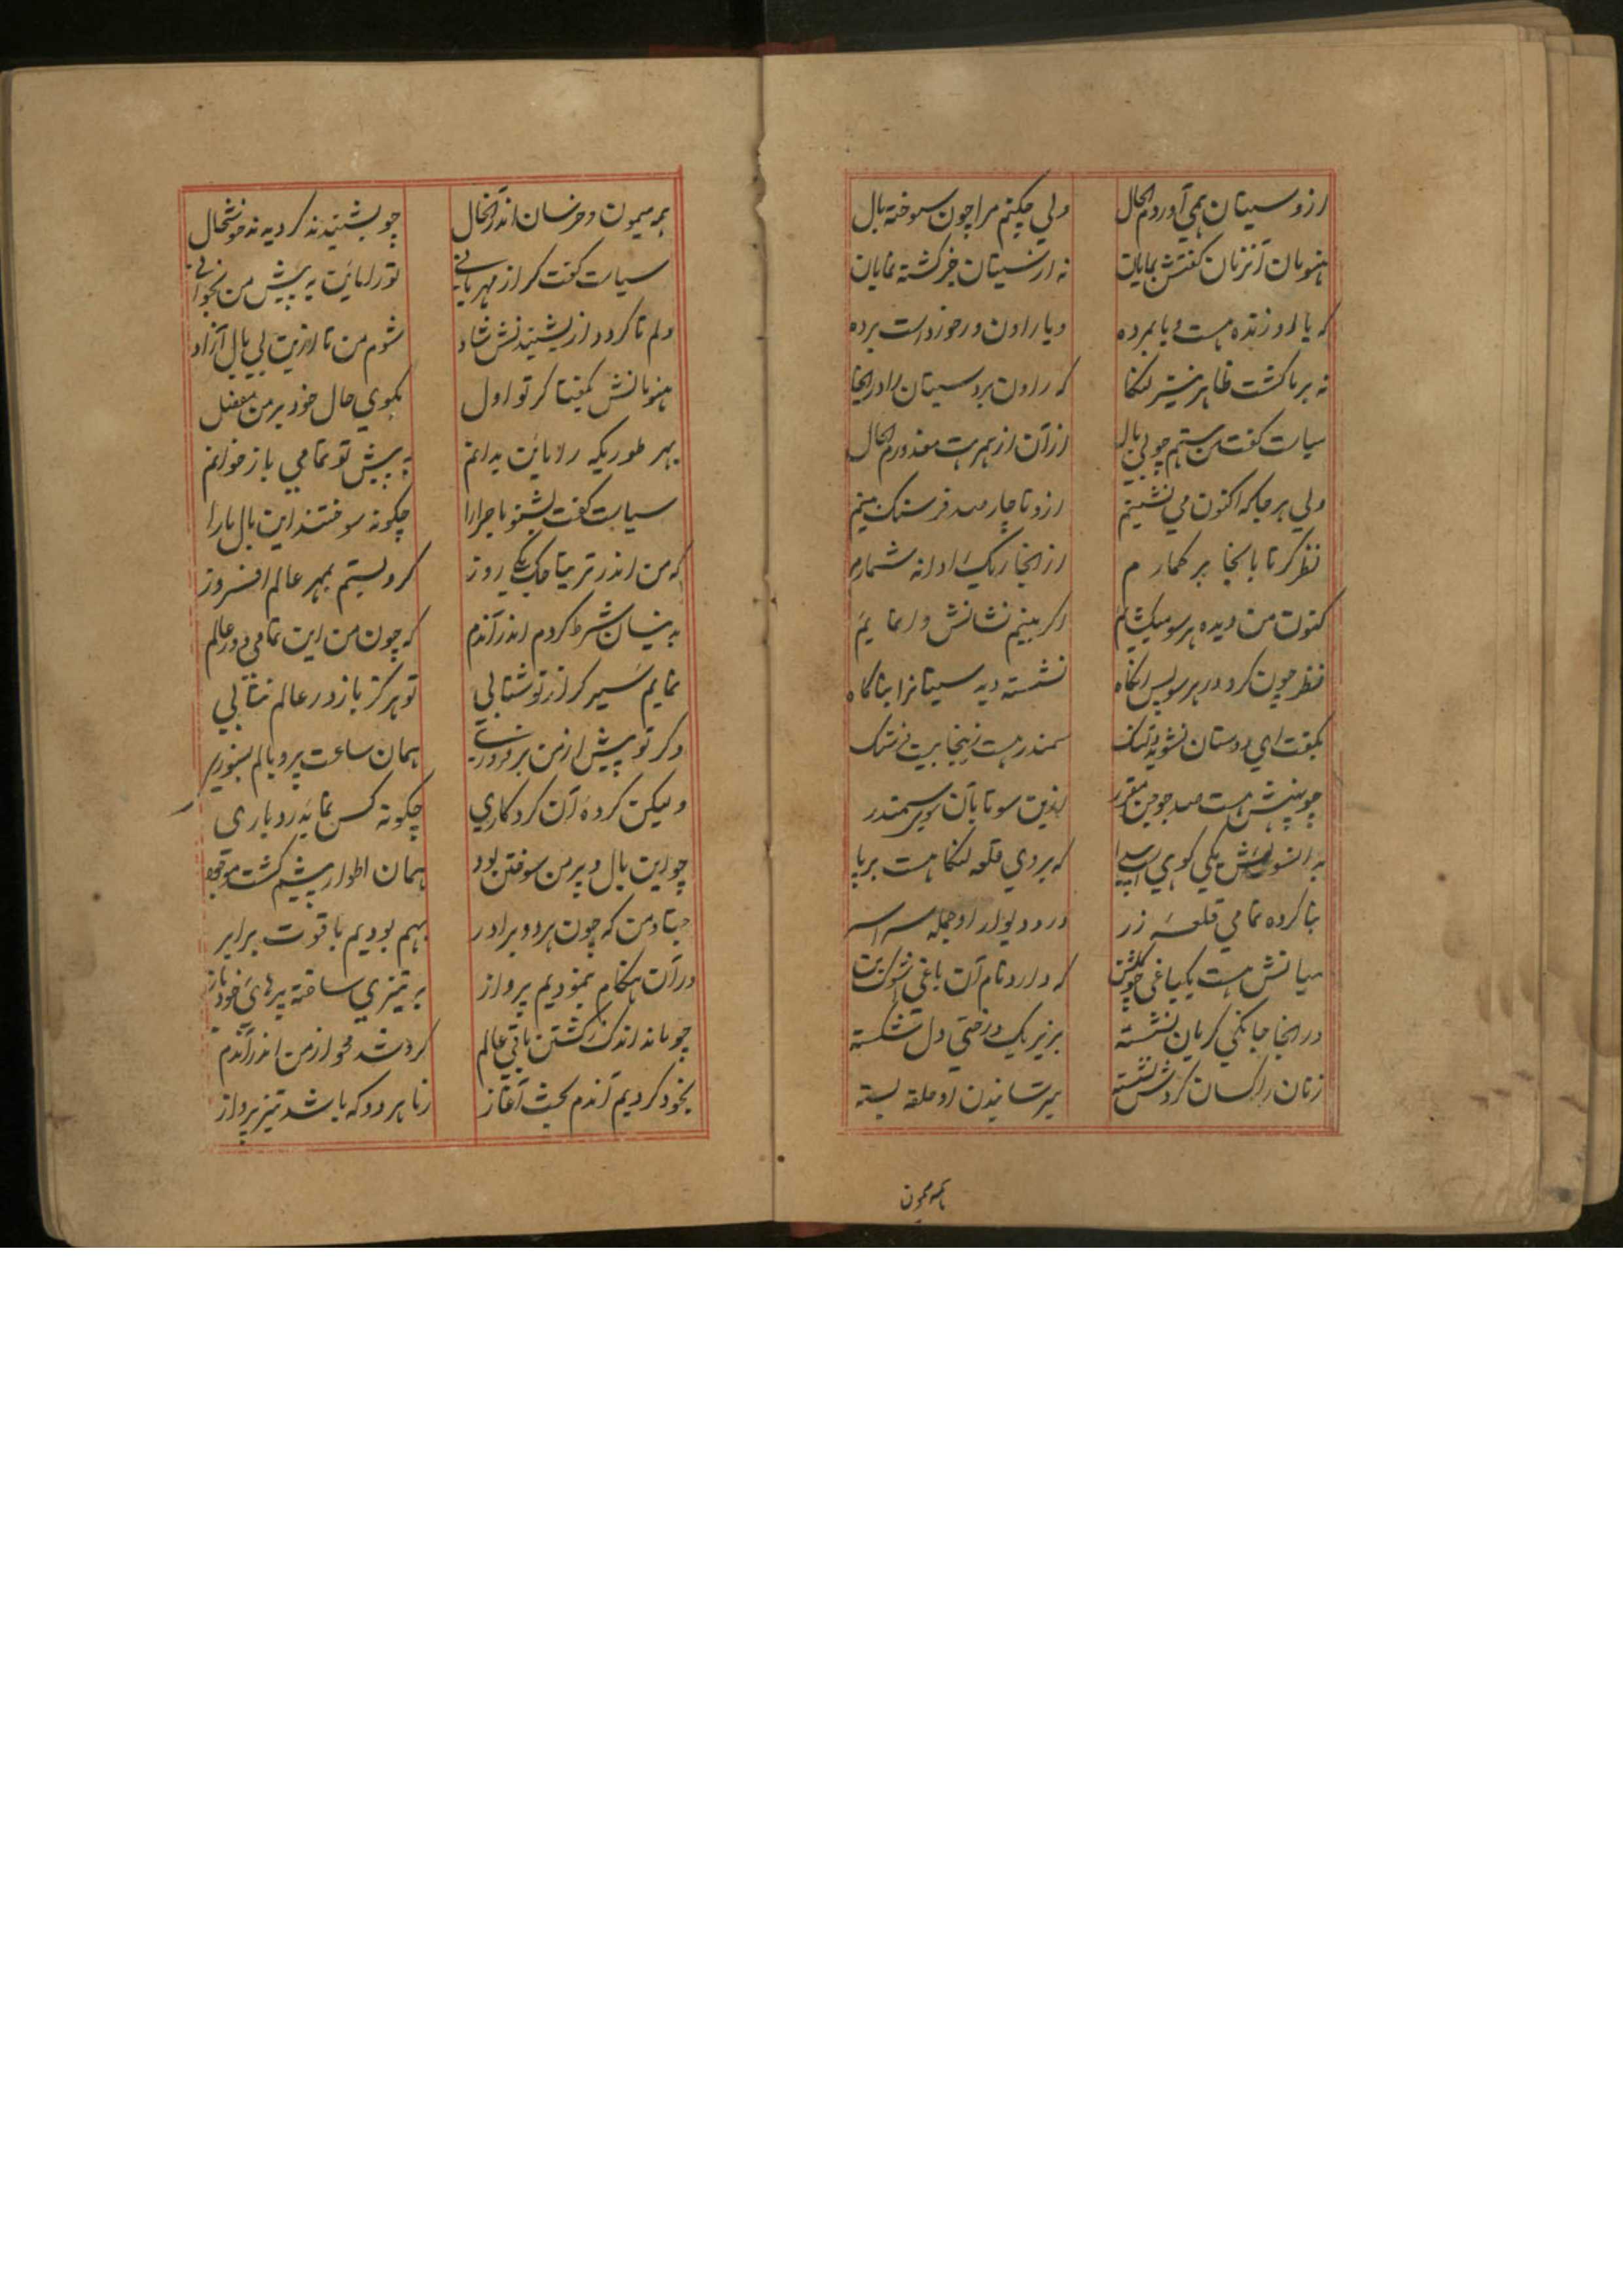 ازو سیتان همی آوردم الحال ولی چکنم مرا چون سوخته بال
هنومان آنزمان گفتش بپایان نه از سیتان خبر گشته نمایان
که یا او زنده هست و یا بمرده و یا راون ورا خورد است برده
نه بر ما گشت ظاهر نیز لنکا که راون برد سیتان را در انجا
سپات گفت من هستم چو بی بال از آن از همرهت معذورم الحال
ولی هر جا که اکنون می نشینم ازو تا چار صد فرسنگ بینم
نظر کر تا بانجا بر کمارم از انجا ریک او دانه شمارم
کنون من دیده هر سو میکشایم اگر بینم نشانش وا نمایم
نظر چون کرد در هر سو پس انگاه نشسته دید سیتانرا بناگاه
بگفت ای دوستان نشوید دلتنگ سمندر هست زینجا بیست فرسنگ
چو پیشش هست صد جوجن مقرر ازین سو تا بآن سوی سمندر
بدانسویش یکی کوهی است پیدا که بر وی قلعه لنکا هست برپا
بنا کرده تمامی قلعه زر در و دیوار او جمله سراسر
میانش هست یکباغی چو گلشن که دارد نام آن باغی اشوک بن
در انجا جانکی گریان نشسته بزیر یک درختی دل شکسته
زنان راکسان گردش نشسته بترسانیدن او حلقه بسته
همه میمون
همه میمون و خرسان اندر انحال چو بشنیدند گردیدند خوشحال
سپات گفت کر از مهربانی تو راماین به پیش من بخوانی
دلم تا گردد از بشنیدنش شاد شوم من تا ازین بی بال آزاد
هنومانش بگفتا کر تو اول بگوی حال خود بر من مفصل
بهر طوریکه راماین بدانم به پیش تو تمامی باز خوانم
سپات گفت بشنو ماجرا را چگونه سوختند این بال ما را
که من اندر ترتیا جک یکی روز گرو بستم بمهر عالم افروز
بدینسان شرط کردم اندر آندم که چون من این تمامی دور عالم
نمایم سیر کر از تو شتابی تو هرگز باز در عالم نتابی
وگر تو پیش از من بر فروزی همان ساعت پر و بالم بسوزی
ولیکن کرده آن کردگاری چگونه کس نماید رو بیاری
چو این بال و پر من سوختن بود همان اطوار پیشم گشت موجود
جتا و من که چون هر دو برادر بهم بودیم با قوت برابر
در آن هنگام بنمودیم پرواز بتیزی ساخته پرهای خود باز
چو ماند اندک ز گشتن باقی عالم گرو شد محو از من اندر آندم
بخود کردیم آندم بحث آغاز ز ما هر دو که باشد تیز پرواز